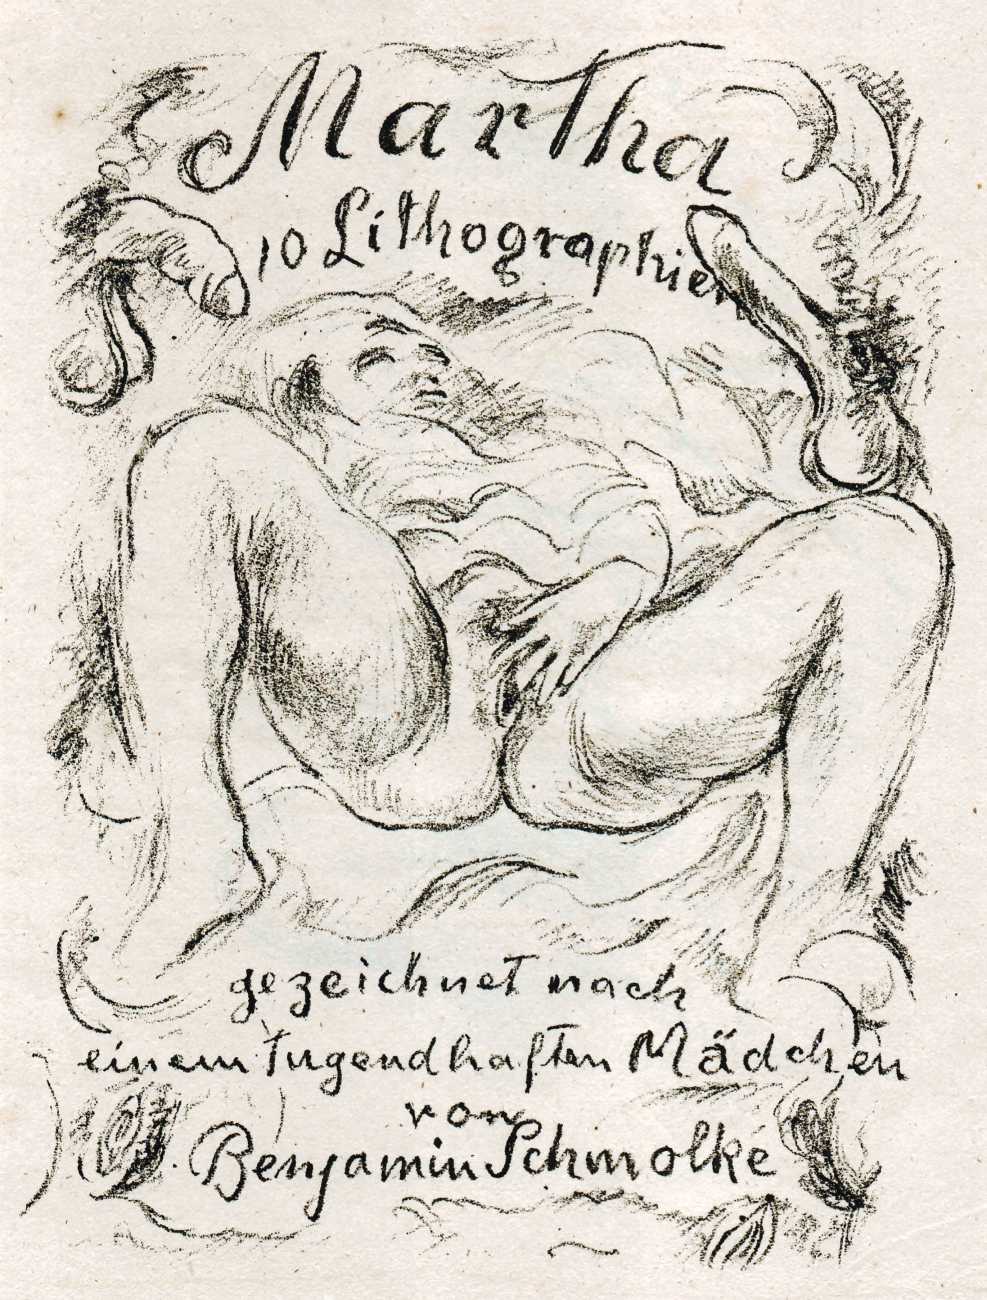 Martha
10 Lithographien
gezeichnet nach
einem tugendhaften Mädchen
von
Benjamin Schmolké